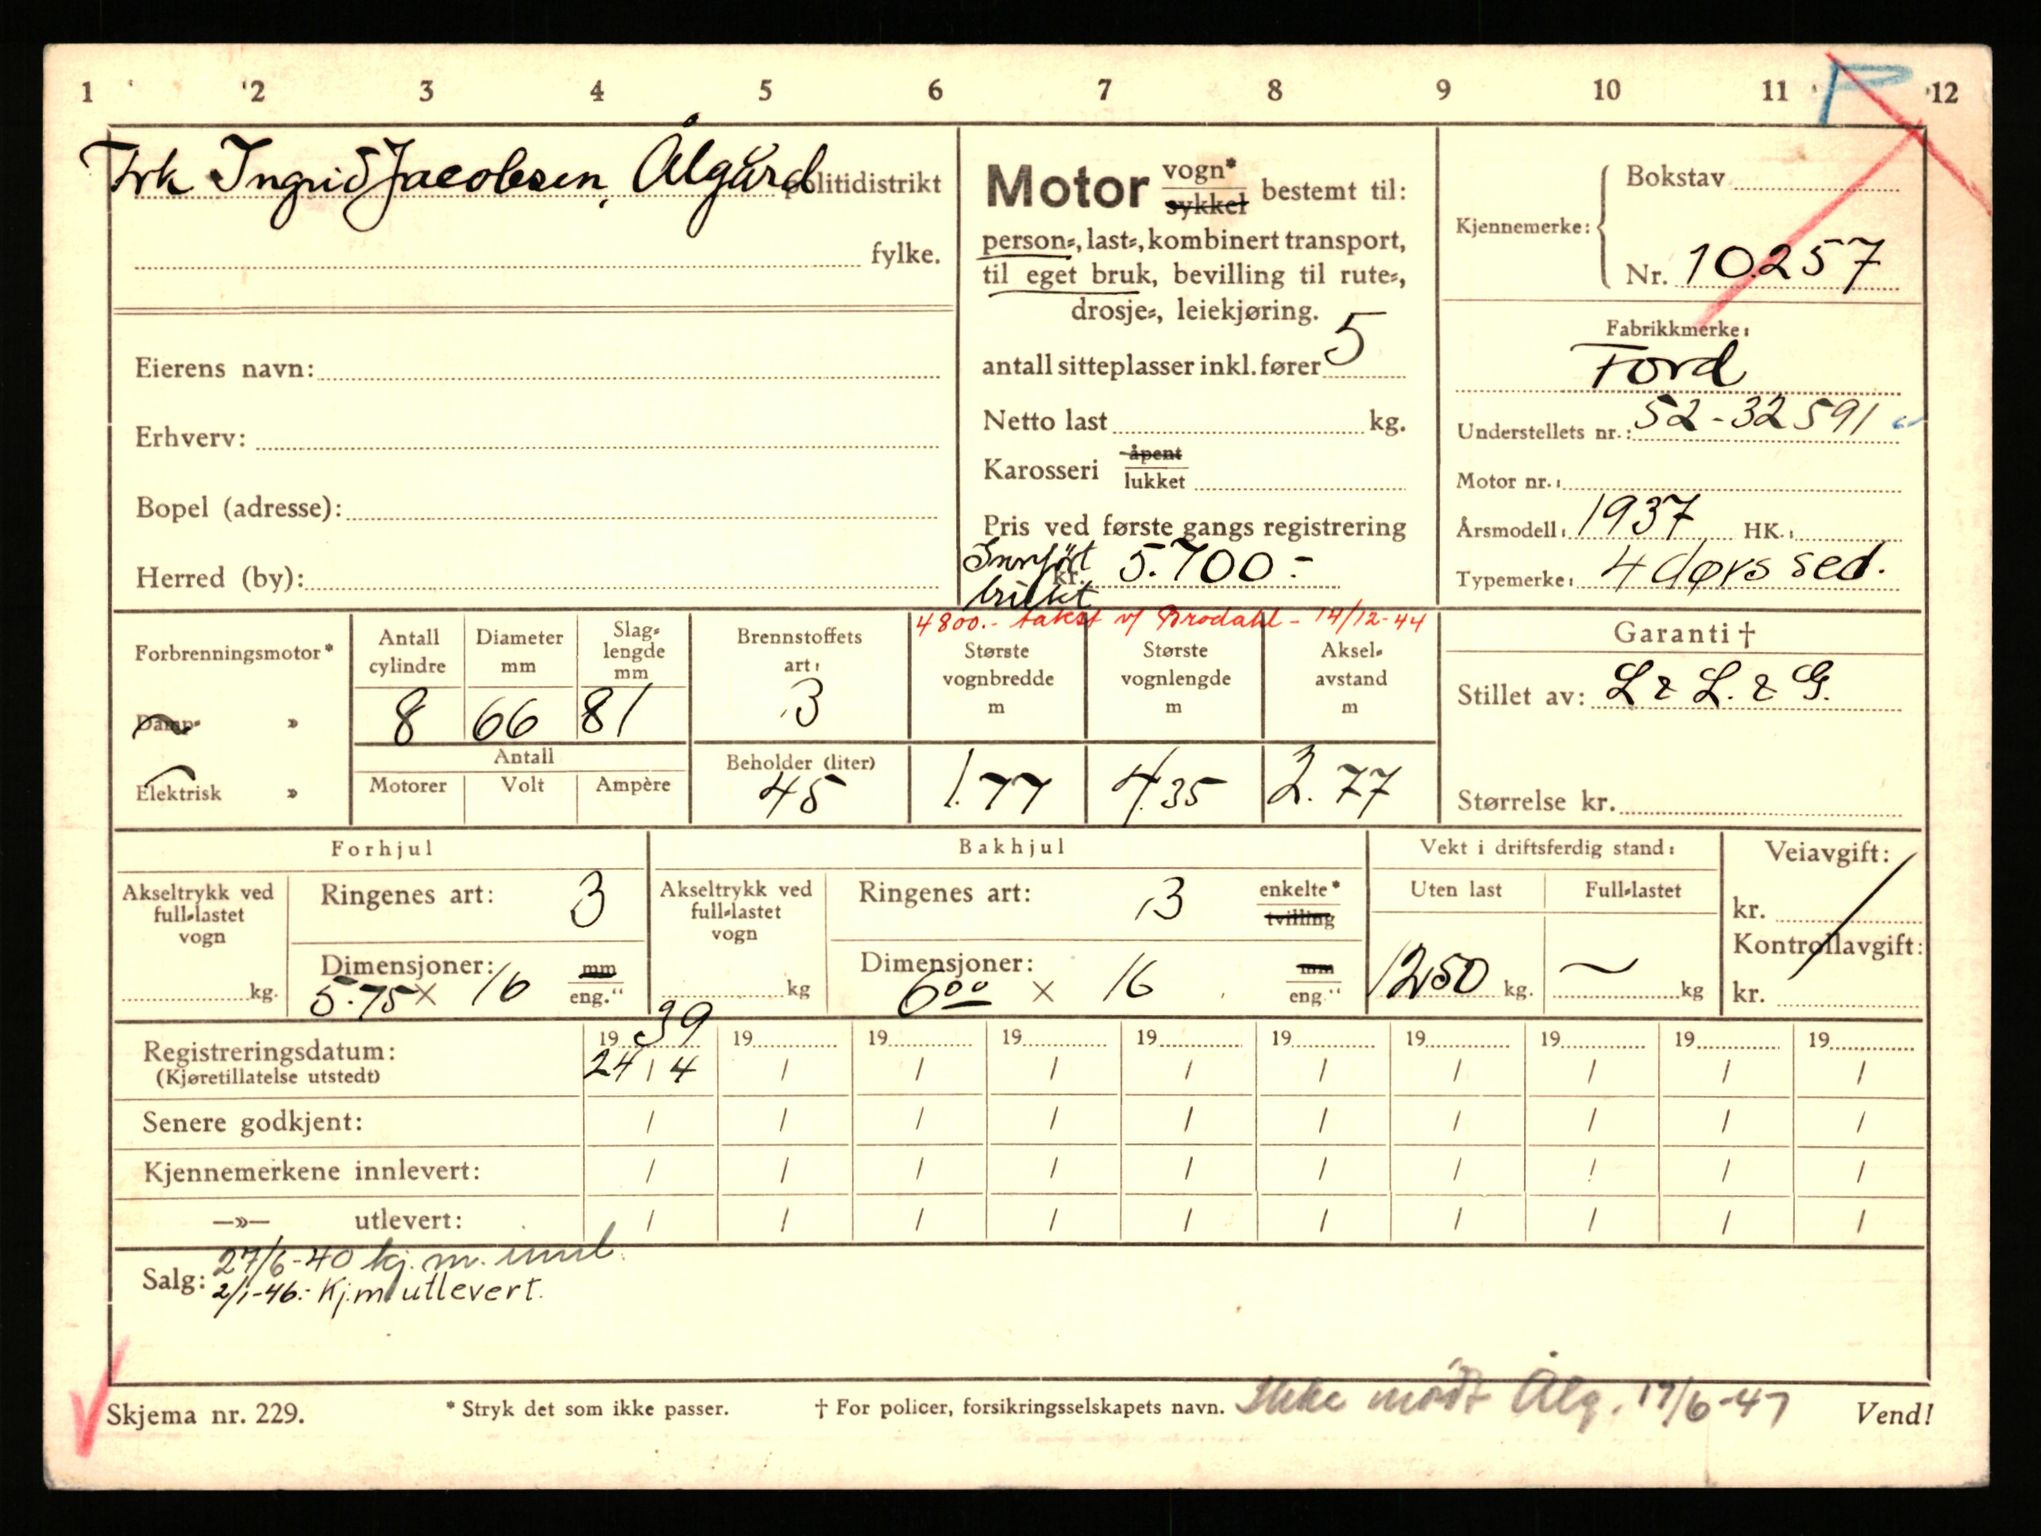 1 2 3 4 5 6 7 8 9 10 11 12
P
Frk Ingrid Jacobsen, Ålgård politidistrikt
fylke.
Eierens navn:
Erhverv:
Bopel (adresse):
Herred (by):
Motor vogn* sykkel bestemt til:
person-, last-, kombinert transport,
til eget bruk, bevilling til rute-,
drosje-, leiekjøring.
antall sitteplasser inkl. fører 5
Netto last kg.
Karosseri åpent lukket
Pris ved første gangs registrering
Innført brukt kr. 5.700.-
4800.- takst v/ Brodahl - 14/12-44
Kjennemerke: Bokstav
Nr. 10257
Fabrikkmerke:
Ford
Understellets nr.: 52-32591
Motor nr.:
Årsmodell: 1937 HK.:
Typemerke: 4 dørs sed.
Forbrenningsmotor*
Damp- »
Elektrisk »
Antall cylindre 8
Diameter mm 66
Slag-lengde mm 81
Antall
Motorer Volt Ampère
Brennstoffets art: 3
Beholder (liter) 45
Største vognbredde m 1.77
Største vognlengde m 4.35
Aksel-avstand m 2.77
Garanti †
Stillet av: L & L. & G.
Størrelse kr.
Forhjul
Akseltrykk ved full-lastet vogn kg.
Ringenes art: 3
Dimensjoner: 5.75 × 16 mm eng."
Bakhjul
Akseltrykk ved full-lastet vogn kg
Ringenes art: 3 enkelte* tvilling
Dimensjoner: 6.00 × 16 mm eng."
Vekt i driftsferdig stand:
Uten last Full-lastet
1250 kg. kg
Veiavgift:
kr.
Kontrollavgift:
kr.
19 39 19 19 19 19 19 19 19 19 19
Registreringsdatum: 24 / 4 / / / / / / / / /
(Kjøretillatelse utstedt)
Senere godkjent: / / / / / / / / / /
Kjennemerkene innlevert: / / / / / / / / / /
—»— utlevert: / / / / / / / / / /
Salg: 27/6-40 kj.m. innl.
2/1-46:- Kj.m. utlevert.
Skjema nr. 229.
* Stryk det som ikke passer.
† For policer, forsikringsselskapets navn.
Ikke mødt Ålg. 17/6-47
Vend!